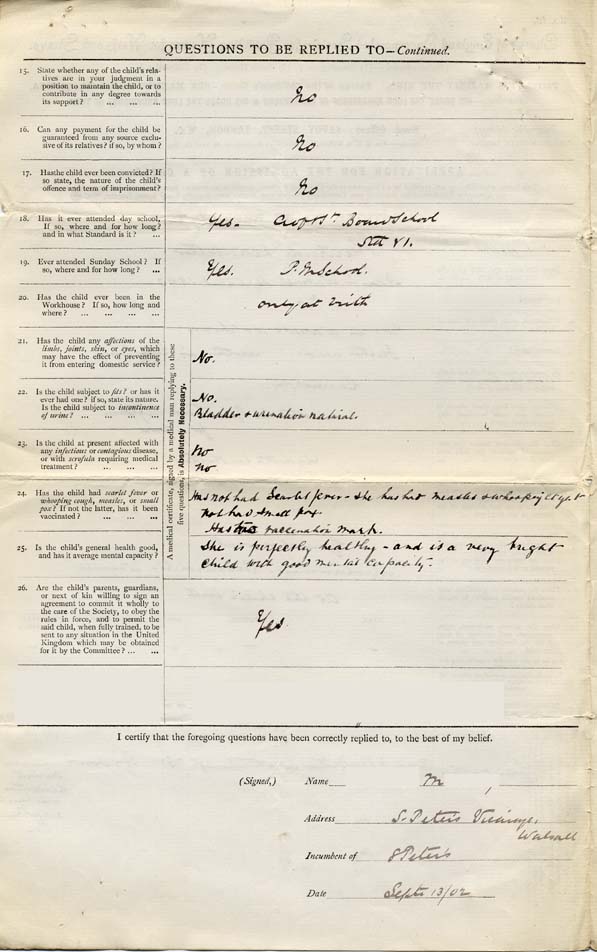 QUESTIONS TO BE REPLIED TO—Continued.
15. State whether any of the child's rela-
tives are in your judgment in a
position to maintain the child, or to
contribute in any degree towards
its support? ... ... ...
No
16. Can any payment for the child be
guaranteed from any source exclu-
sive of its relatives? if so, by whom?
No
17. Has the child ever been convicted? If
so state, the nature of the child's
offence and term of imprisonment?
No
18. Has it ever attended day school,
If so, where and for how long?
and in what Standard is it? ...
Yes. Croft St Board School
Std VI.
19. Ever attended Sunday School? If
so, where and for how long? ...
Yes. School.
20. Has the child ever been in the
Workhouse? If so, how long and
where? ... ... ... ...
only at birth
A medical certificate, signed by a medical man replying to these
five questions, is Absolutely Necessary.
21. Has the child any affections of the
limbs, joints, skin, or eyes, which
may have the effect of preventing
it from entering domestic service?
No.
22. Is the child subject to fits? or has it
ever had one? if so, state its nature.
Is the child subject to incontinence
of urine? ... ... ... ...
No.
Bladder & urination natural.
23. Is the child at present affected with
any infectious or contagious disease,
or with scrofula requiring medical
treatment? ... ... ...
No
No
24. Has the child had scarlet fever or
whooping cough, measles, or small
pox? If not the latter, has it been
vaccinated? ... ... ...
Has not had Scarlet fever - She has had measles & whooping
not had Small pox
Has vaccination mark.
25. Is the child's general health good,
and has it average mental capacity?
She is perfectly healthy - and is a very bright
child with good mental capacity.
26. Are the child's parents, guardians,
or next of kin willing to sign an
agreement to commit it wholly to
the care of the Society, to obey the
rules in force, and to permit the
said child, when fully trained, to be
sent to any situation in the United
Kingdom which may be obtained
for it by the Committee? ... ...
Yes.
I certify that the foregoing questions have been correctly replied to, to the best of my belief.
(Signed,) Name M
Address S. Peter's Vicarage,
Walsall
Incumbent of S Peter's
Date Sept 13/02